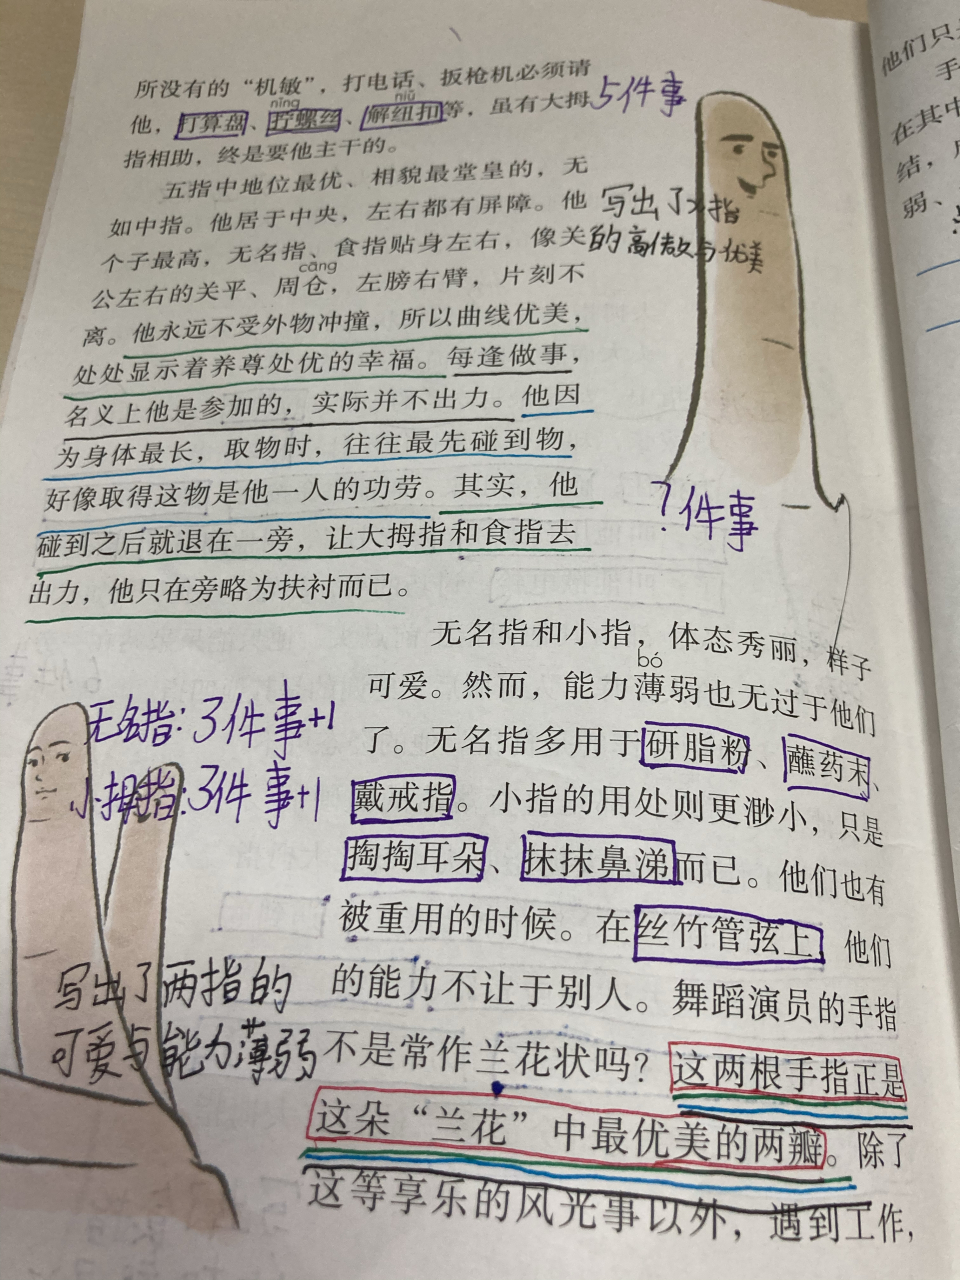 所没有的“机敏”，打电话、扳枪机必须请
nǐng niǔ
他，打算盘、拧螺丝、解纽扣等，虽有大拇
指相助，终是要他主干的。
5件事
五指中地位最优、相貌最堂皇的，无
如中指。他居于中央，左右都有屏障。他
个子最高，无名指、食指贴身左右，像关
cāng
公左右的关平、周仓，左膀右臂，片刻不
离。他永远不受外物冲撞，所以曲线优美，
处处显示着养尊处优的幸福。每逢做事，
名义上他是参加的，实际并不出力。他因
为身体最长，取物时，往往最先碰到物，
好像取得这物是他一人的功劳。其实，他
碰到之后就退在一旁，让大拇指和食指去
出力，他只在旁略为扶衬而已。
写出了 指
的高傲与优美
?件事
无名指和小指，体态秀丽，样子
bó
可爱。然而，能力薄弱也无过于他们
了。无名指多用于研脂粉、蘸药末、
戴戒指。小指的用处则更渺小，只是
掏掏耳朵、抹抹鼻涕而已。他们也有
被重用的时候。在丝竹管弦上，他们
的能力不让于别人。舞蹈演员的手指
不是常作兰花状吗？这两根手指正是
这朵“兰花”中最优美的两瓣。除了
这等享乐的风光事以外，遇到工作，
无名指：3件事+1
小拇指：3件事+1
写出了两指的
可爱与能力薄弱
他们只
手
在其中
结，
弱、